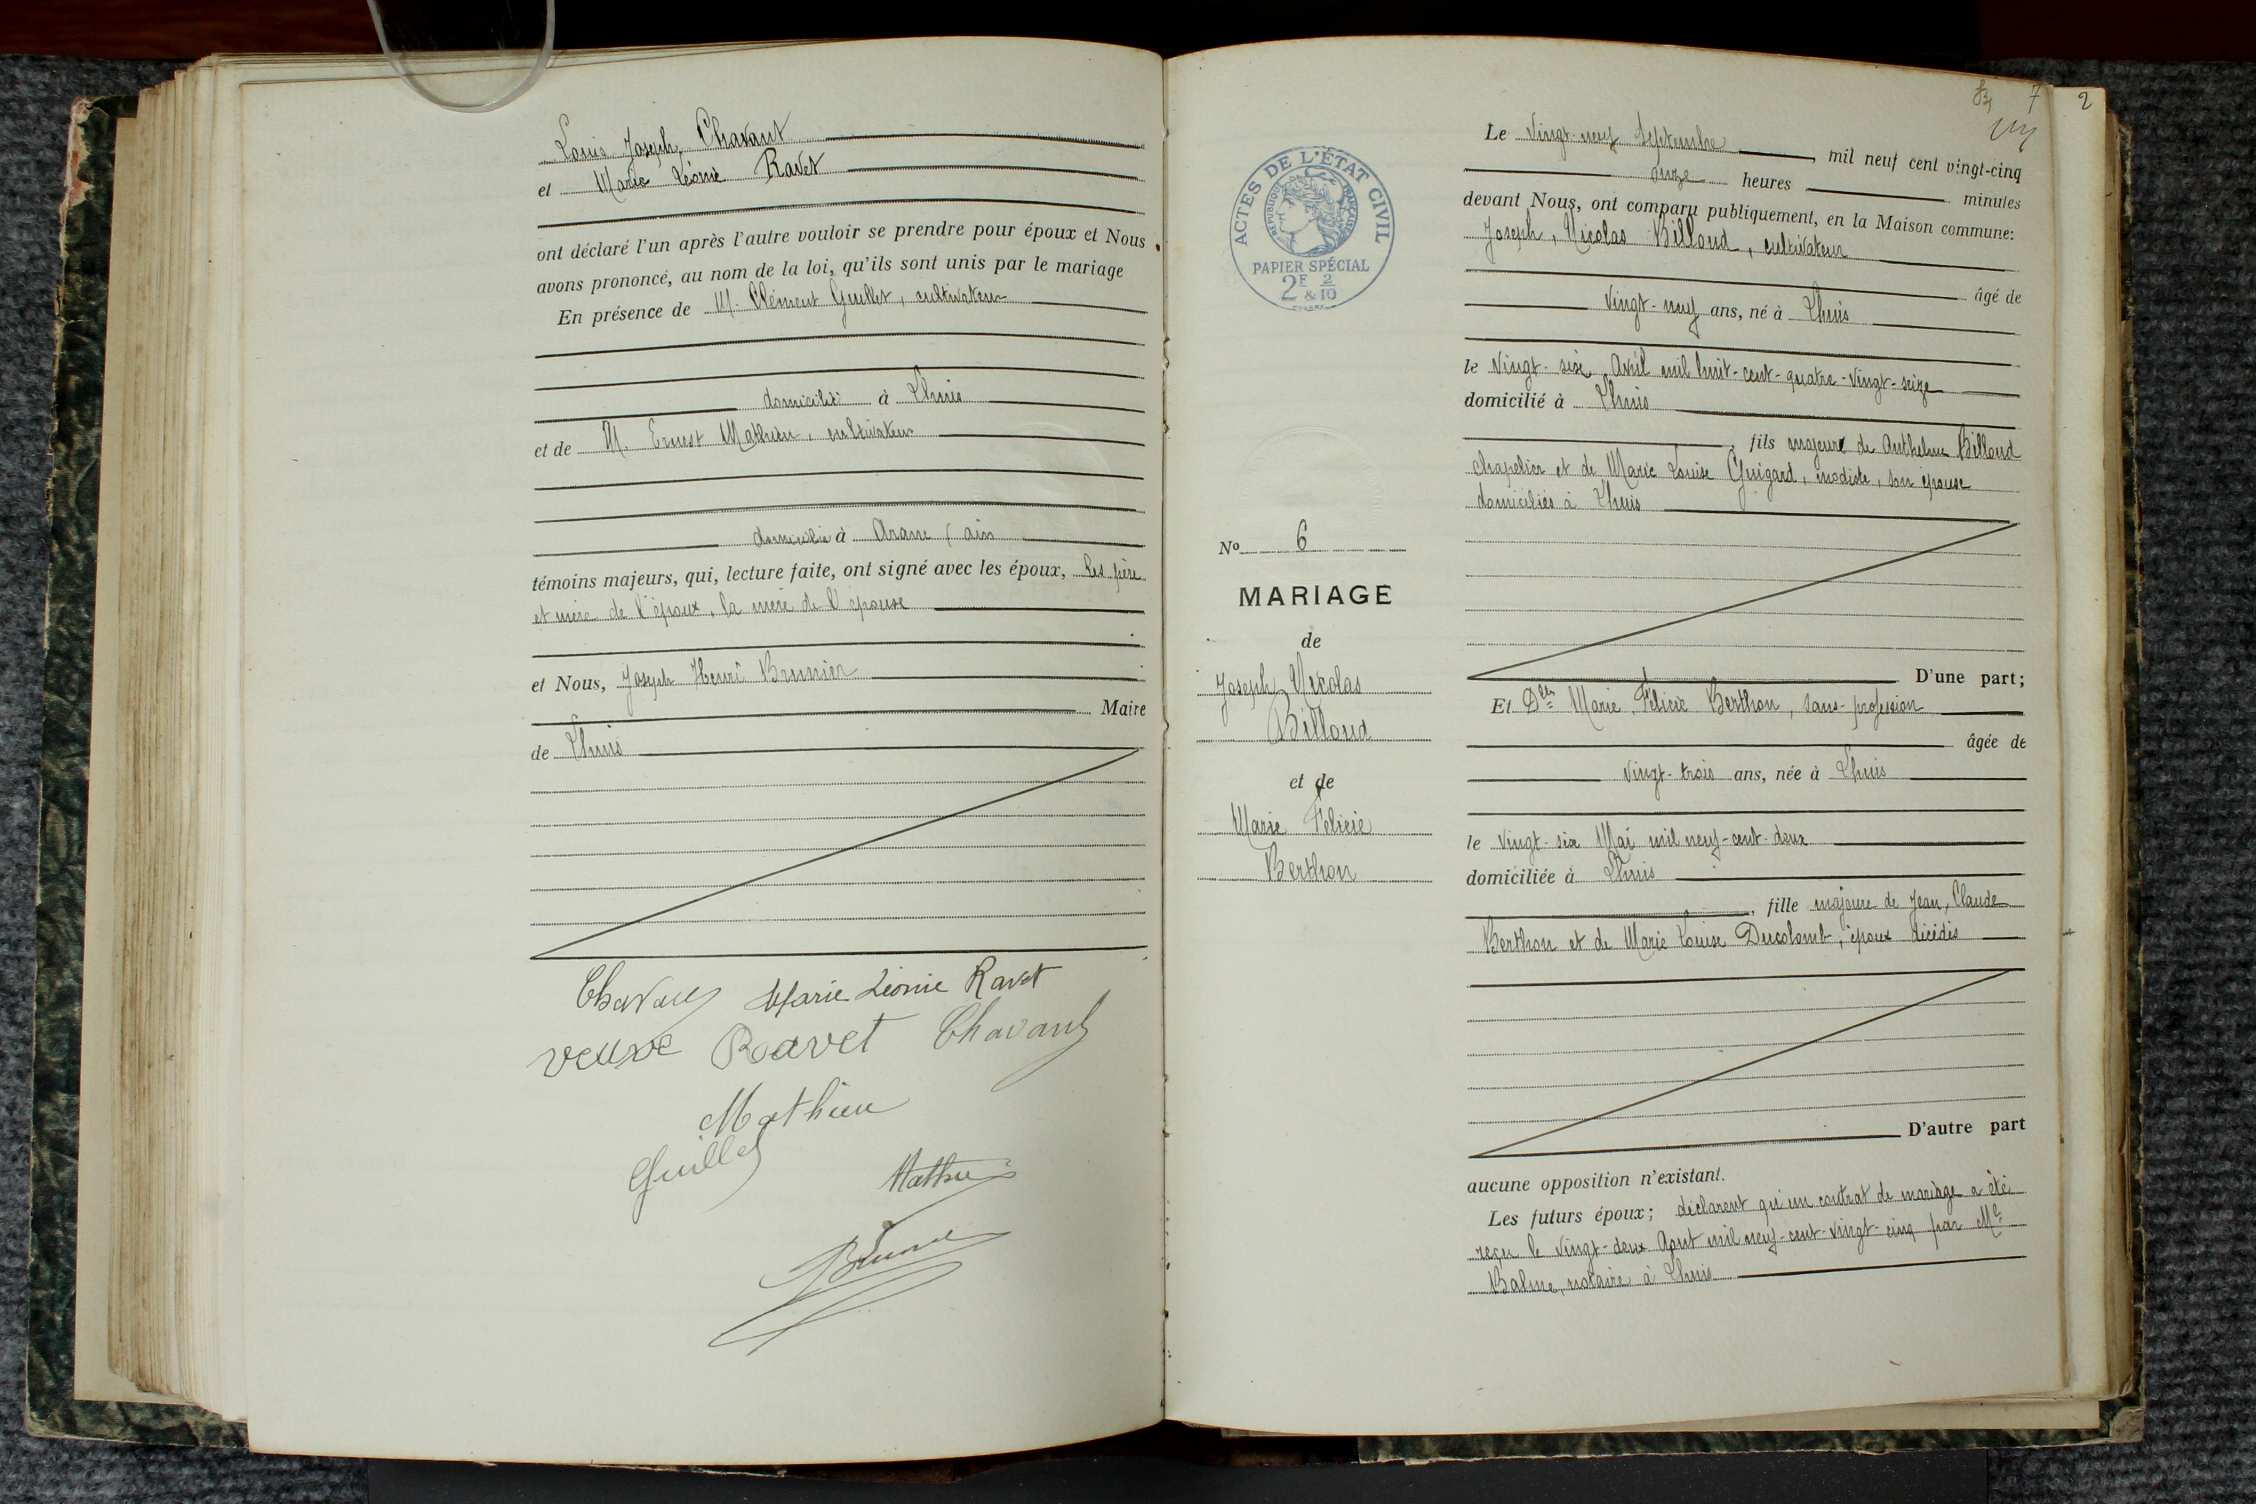 Louis Joseph Chavant
et Marie Léonie Ravet
ont déclaré l'un après l'autre vouloir se prendre pour époux et Nous
avons prononcé, au nom de la loi, qu'ils sont unis par le mariage
En présence de M. Clément Guillet, cultivateur
domicilié à Lhuis
et de M. Ernest Mathieu, cultivateur
domicilié à Aranc (ain
témoins majeurs, qui, lecture faite, ont signé avec les époux, les père
et mère de l'époux, la mère de l'épouse
et Nous, Joseph Henri Brunier
Maire
de Lhuis
Chavant Marie Léonie Ravet
veuve Ravet Chavant
Mathieu
Guillet
Mathieu
Brunier
7 2
ACTES DE L'ÉTAT CIVIL
REPUBLIQUE FRANÇAISE
PAPIER SPÉCIAL
2F & 2/10
No 6
MARIAGE
de
Joseph Nicolas
Billoud
et de
Marie Félicie
Berthon
Le Vingt-neuf Septembre, mil neuf cent vingt-cinq
onze heures minutes
devant Nous, ont comparu publiquement, en la Maison commune:
Joseph, Nicolas Billoud, cultivateur
âgé de
vingt-neuf ans, né à Lhuis
le vingt-six Avril mil huit-cent-quatre-vingt-seize
domicilié à Lhuis
, fils majeur de Anthelme Billoud
chapelier et de Marie Louise Guigard, modiste, son épouse
domiciliés à Lhuis
D'une part;
Et Dlle Marie Félicie Berthon, sans-profession
âgée de
vingt-trois ans, née à Lhuis
le vingt-six Mai mil neuf-cent-deux
domiciliée à Lhuis
, fille majeure de Jean, Claude
Berthon et de Marie Louise Ducolomb, époux décédés
D'autre part
aucune opposition n'existant.
Les futurs époux; déclarent qu'un contrat de mariage a été
reçu le vingt-deux Aout mil neuf-cent-vingt-cinq par Me
Balme, notaire à Lhuis